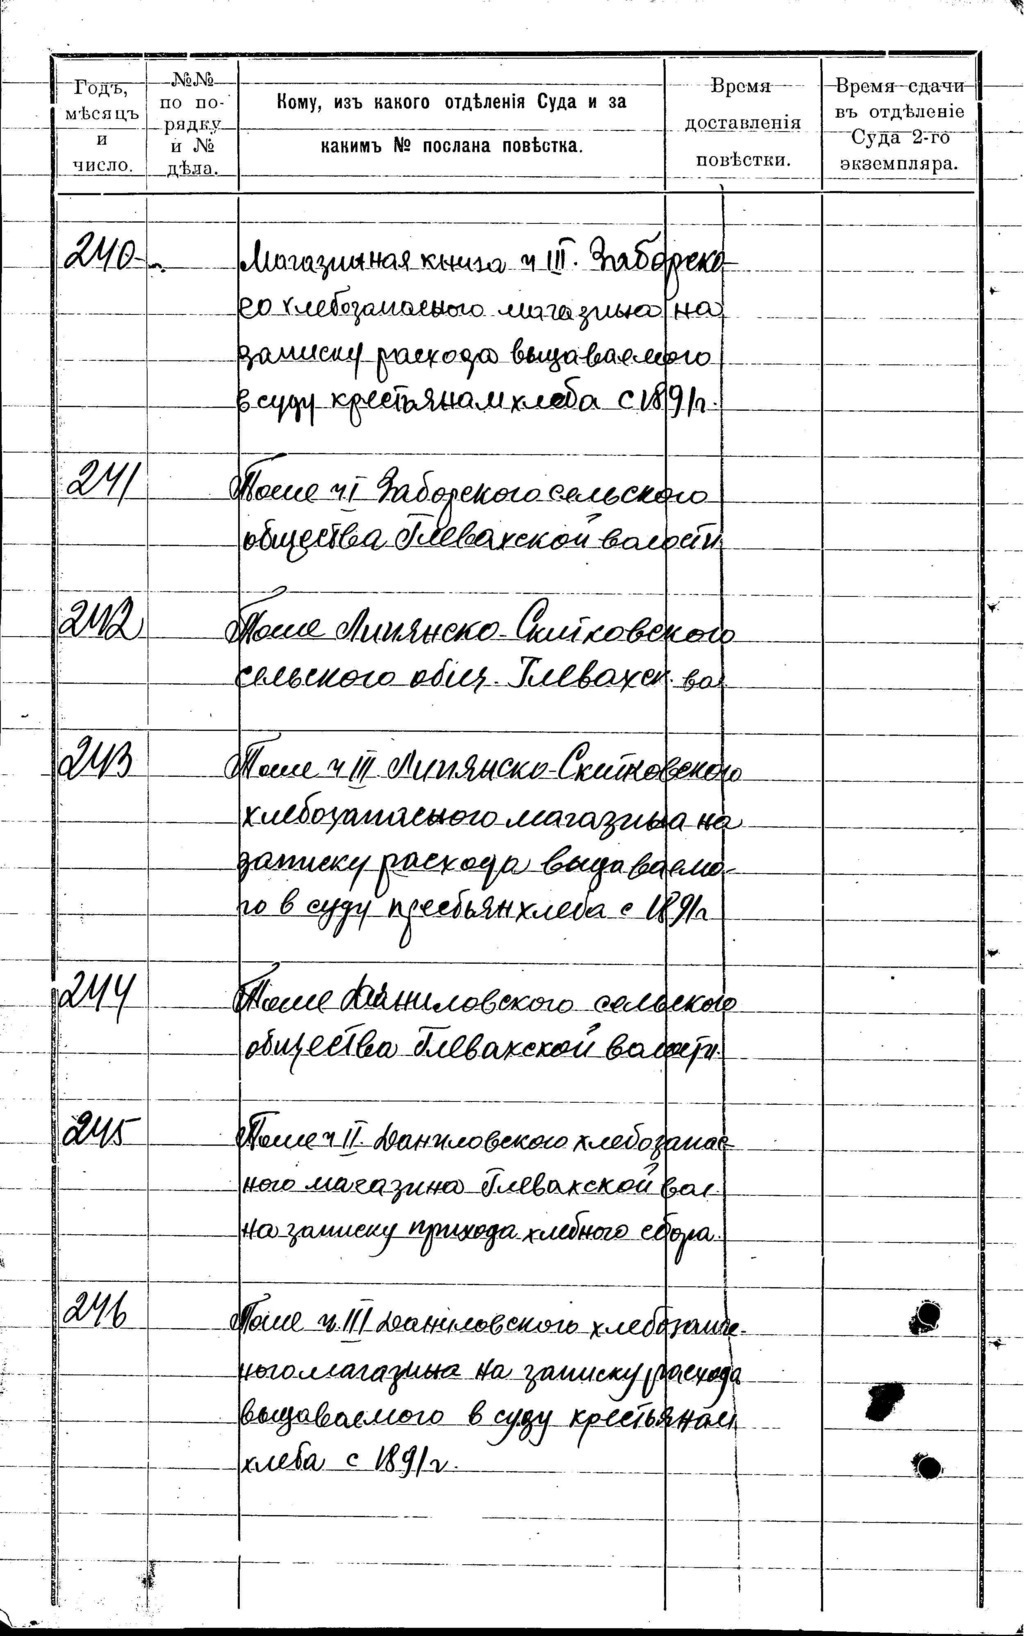 Годъ,
мѣсяцъ
и
число.
№№
по по-
рядку
и №
дѣла.
Кому, изъ какого отдѣленія Суда и за
какимъ № послана повѣстка.
Время
доставленія
повѣстки.
Время сдачи
въ отдѣленіе
Суда 2-го
экземпляра.
240 Магазинная книга ч III. Заборско
го хлебозапасного магазина на
записку расхода выдаваемого
в суду крестьянам хлеба с 1891г.
241 Тоже ч I Заборского сельского
общества Глевахской волости
242 Тоже Липянско-Скитковского
сельского общ. Глевахск. во
243 Тоже ч III Липянско-Скитковского
хлебозапасного магазина на
записку расхода выдаваемо-
го в суду кресьян хлеба с 1891г
244 Тоже Даниловского сельского
общества Глевахской волости.
245 Тоже ч II. Даниловского хлебозапас-
ного магазина Глевахской вол.
на записку прихода хлебного сбора.
246 Тоже ч. III Даниловского хлебозапас-
ного магазина на записку расхода
выдаваемого в суду крестьянам
хлеба с 1891г.